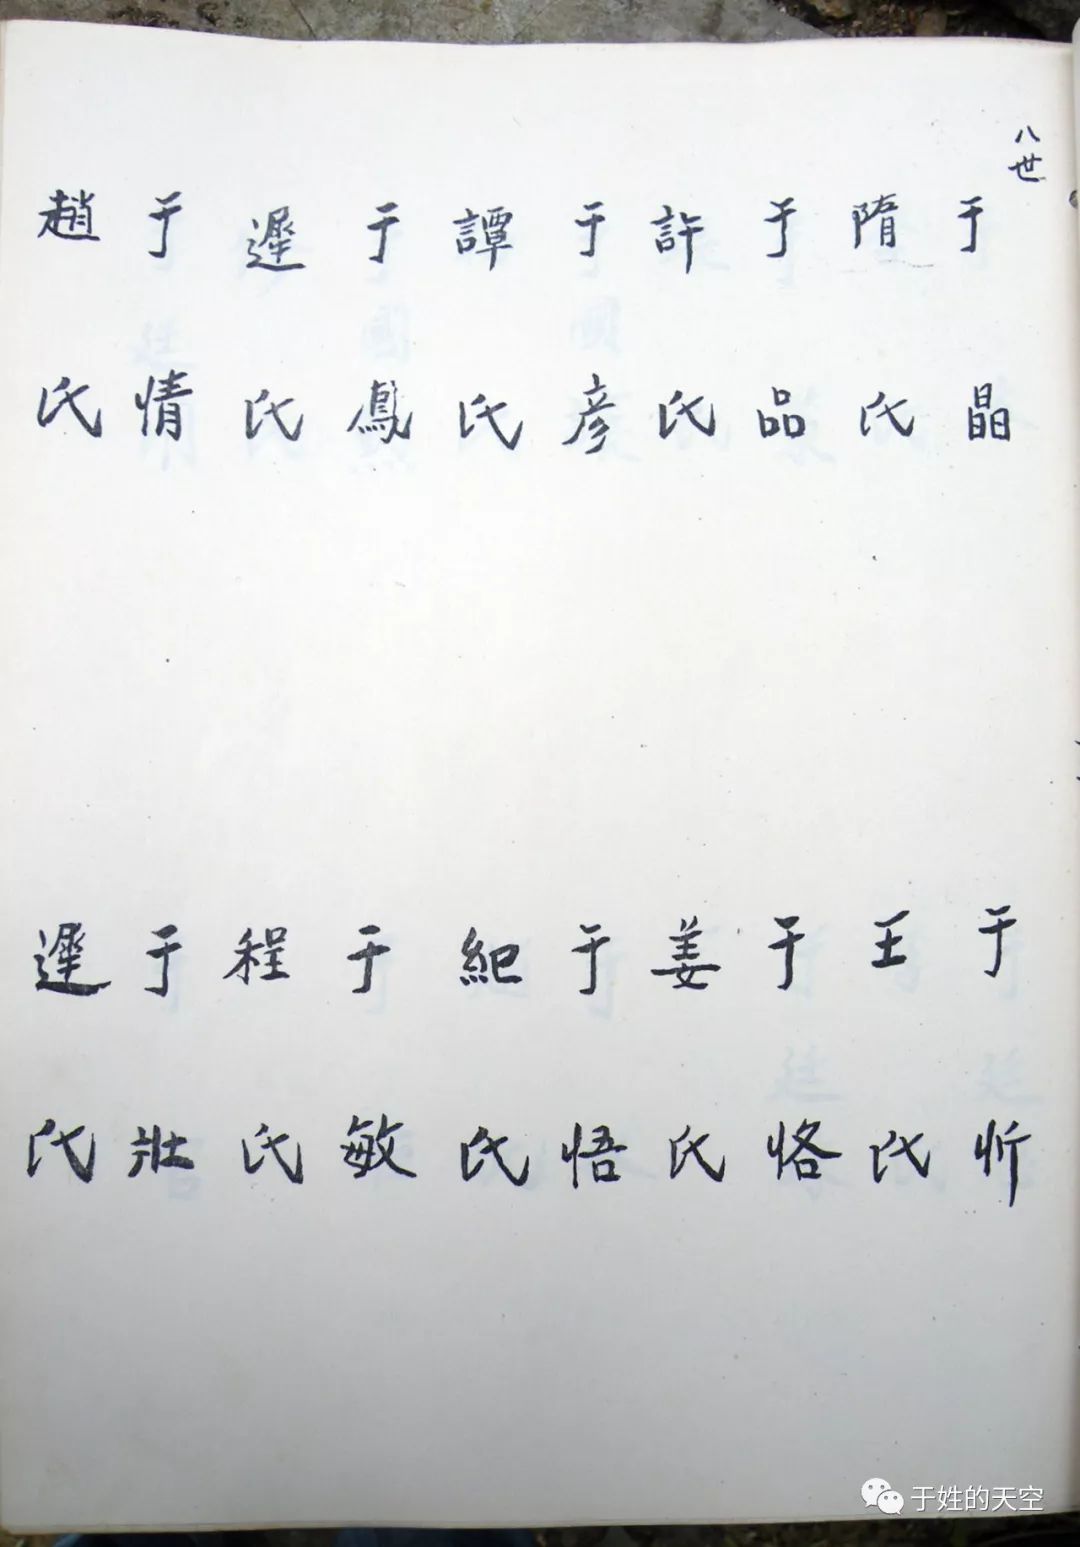 八世
于晶
隋氏
于品
許氏
于彦
譚氏
于鳳
遲氏
于情
趙氏
于忻
王氏
于恪
姜氏
于悟
紀氏
于敏
程氏
于壯
遲氏
于姓的天空